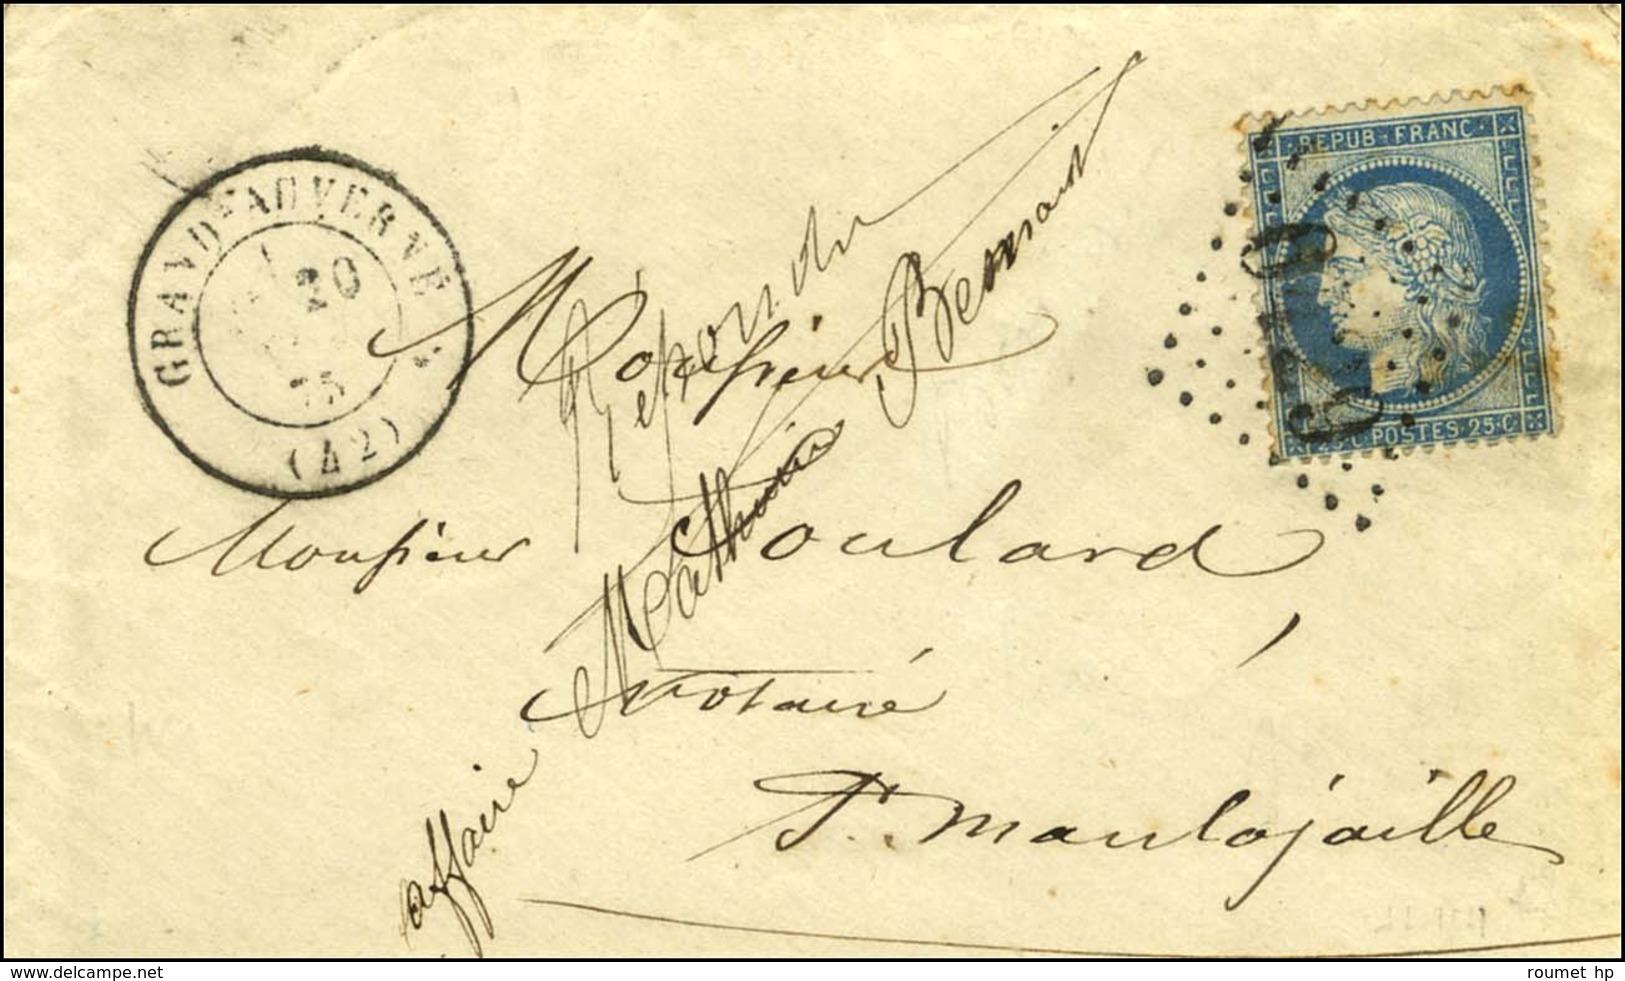 GRAND-AUVERNE
20
75
(42)
REPUB·FRANC·
25·C·POSTES·25·C·
Répondu
Monsieur
Monsieur Goulard,
Notaire
St. Maulojaille
affaire Mathurin Bernard
www.delcampe.net
roumet hp